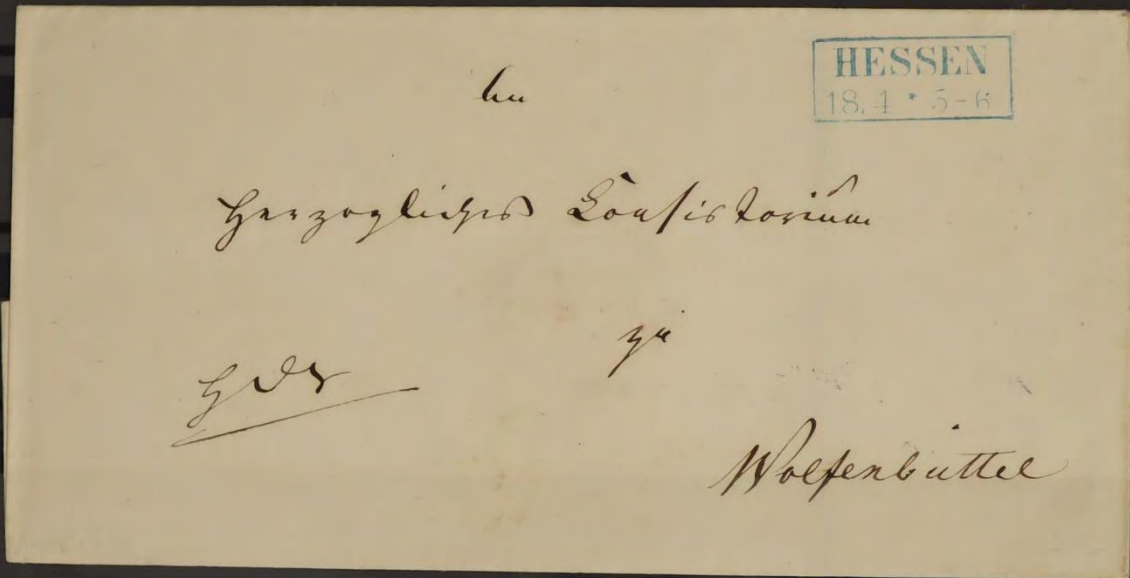 HESSEN
18.4 * 5-6
An
Herzogliches Consistorium
zu
Wolfenbüttel